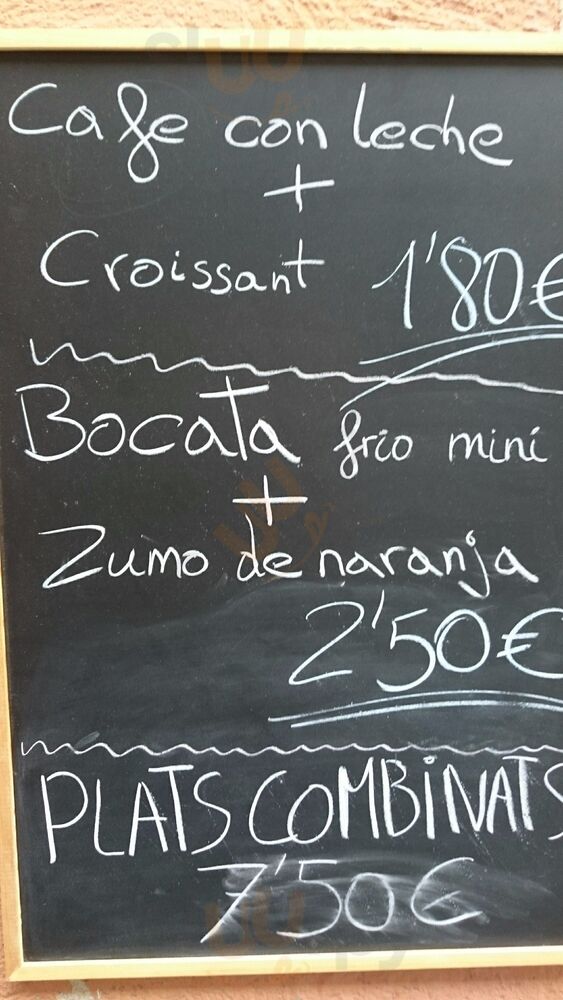 Cafe con leche
+
Croissant 1'80€
Bocata frio mini
+
Zumo de naranja
2'50€
PLATS COMBINATS
7'50€